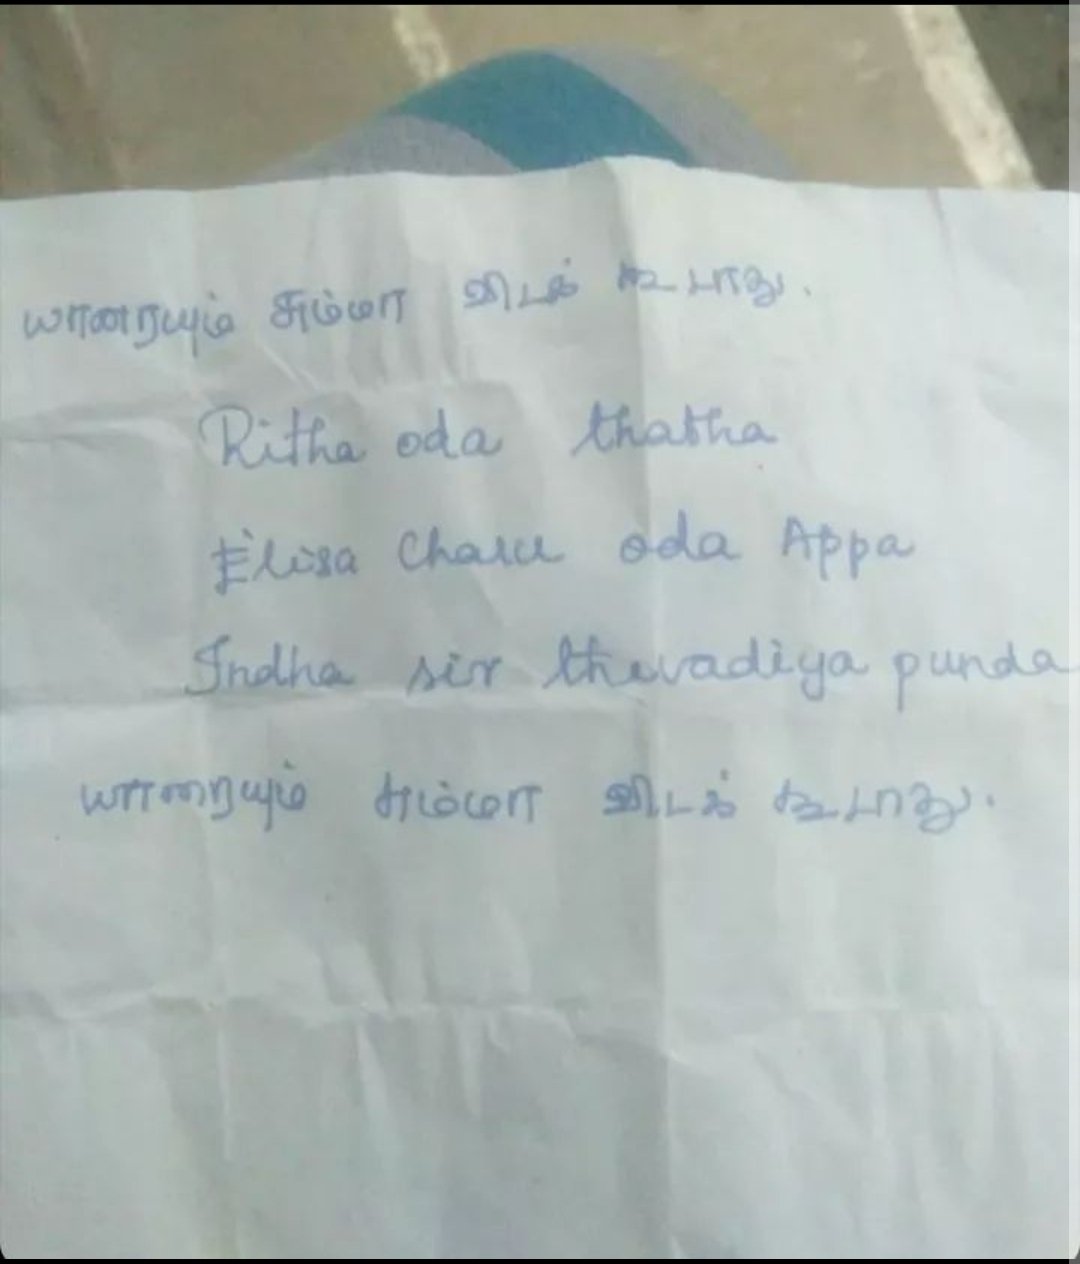 யாரையும் சும்மா விடக் கூடாது.
Ritha oda thatha
Elisa Charu oda Appa
Indha sir thevadiya punda
யாரையும் சும்மா விடக் கூடாது.